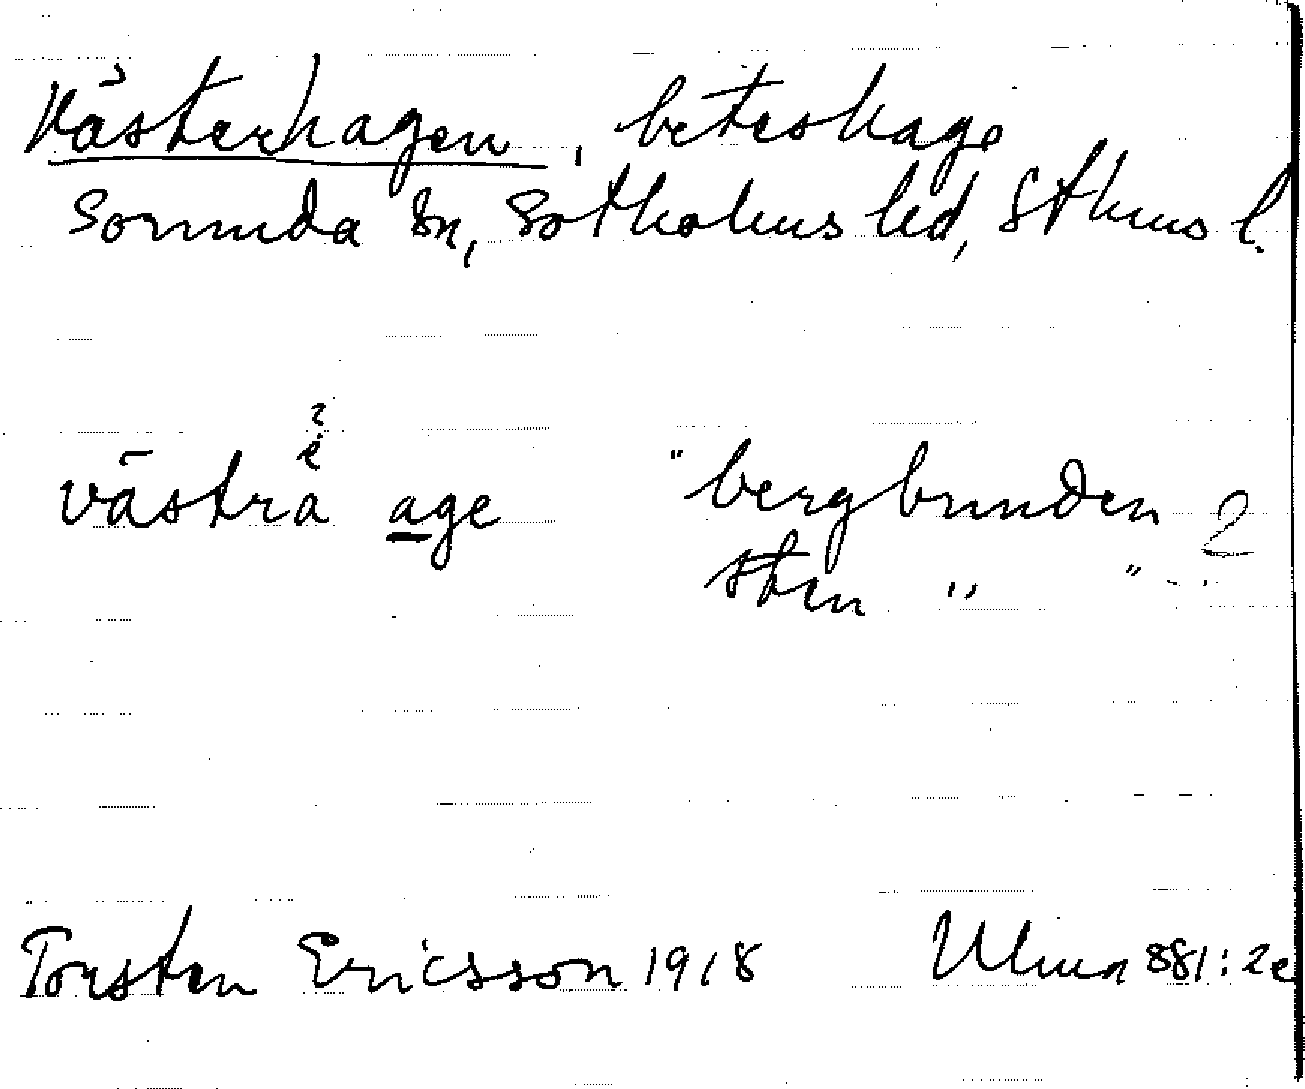 Västerhagen, beteshage
Sorunda sn, Sotholms hd, Sthms l.
?
e
västra age "bergbunden 2
sten " "
Torsten Ericsson 1918 Ulma 881:2c